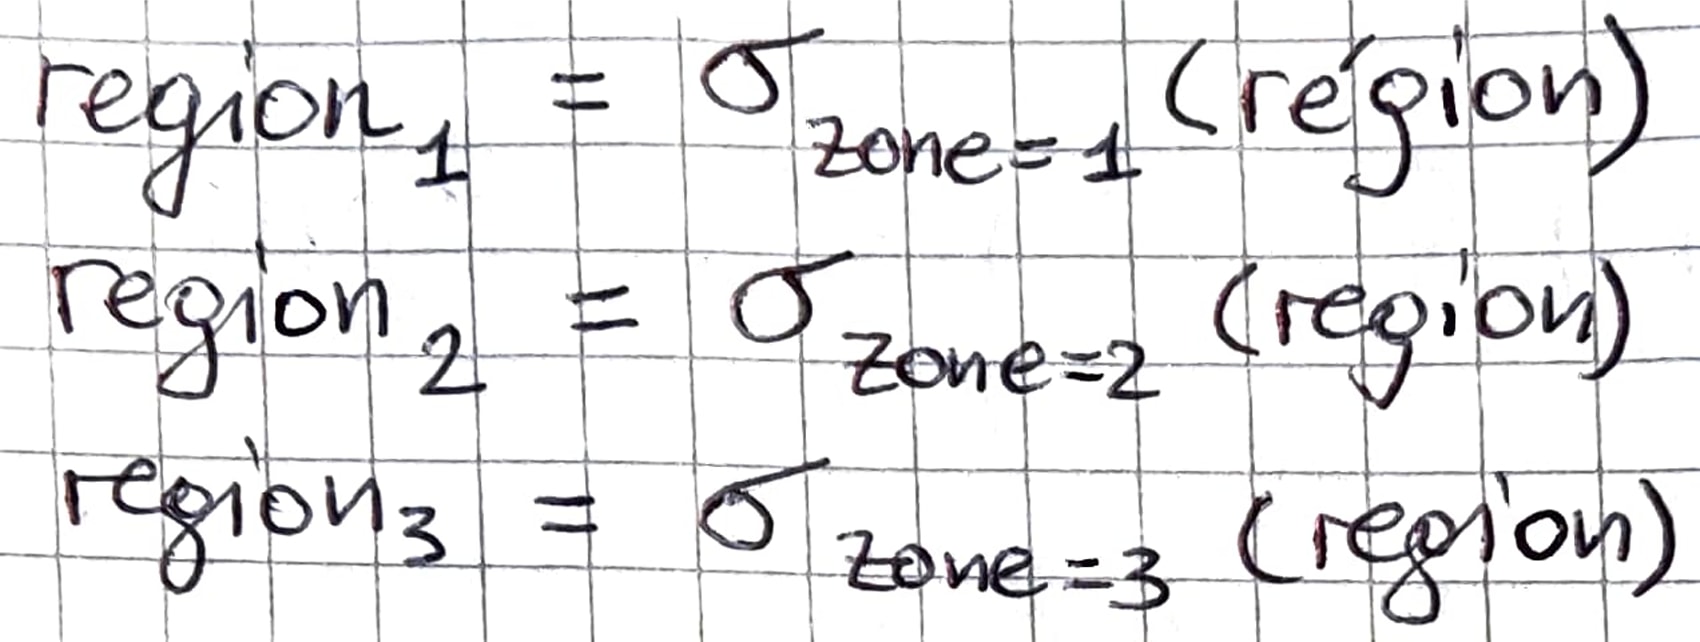 region₁ = σ zone=1 (région)
region₂ = σ zone=2 (region)
region₃ = σ zone=3 (region)